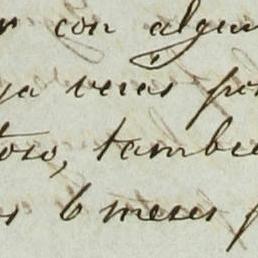 r con algun
ya veces po
toso, tambie
s 6 meses p